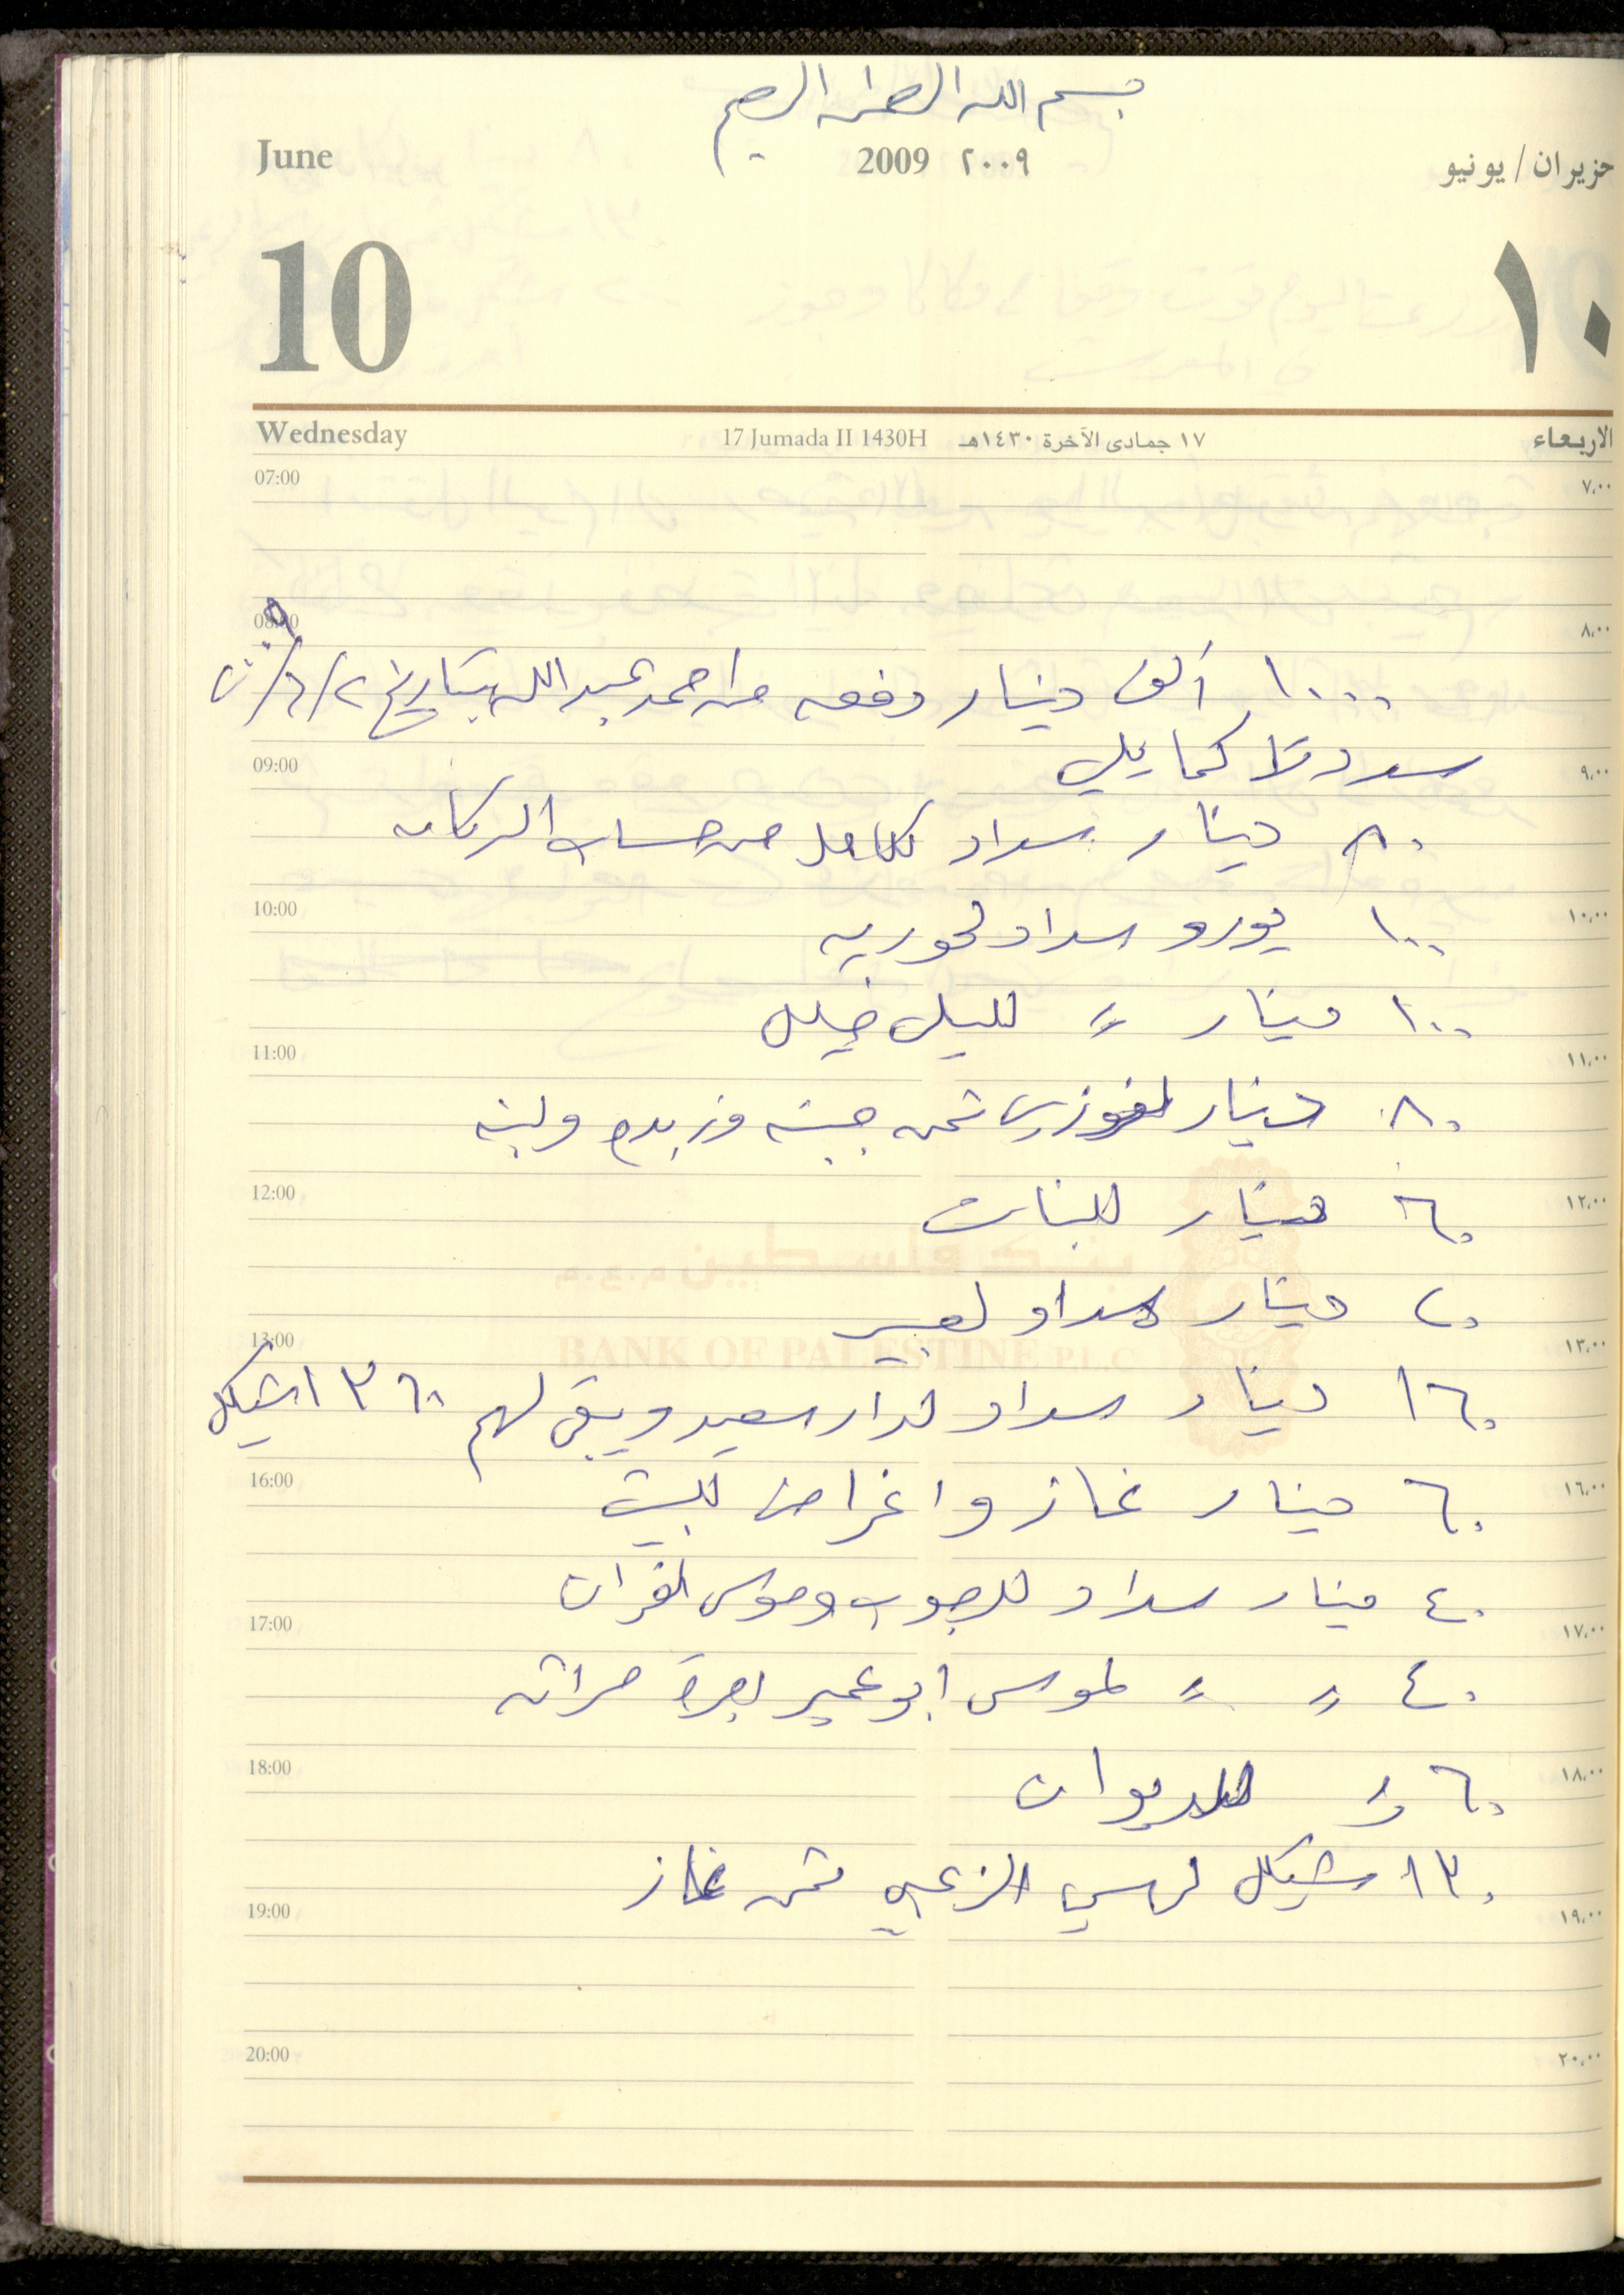 بسم الله الرحمن الرحيم
June 2009 ٢٠٠٩ حزيران / يونيو
10 ١٠
Wednesday 17 Jumada II 1430H ١٧ جمادى الآخرة ١٤٣٠هـ الاربعاء
07:00 ٧،٠٠
08:00 ٨،٠٠
١٠٠٠ ألف دينار دفعه من احمد عبد الله بتاريخ ٢/٦/٢٠٠٩
سددتها كما يلي
09:00 ٩،٠٠
٨٠ دينار سداد كامل من حساب
10:00 ١٠،٠٠
١٠٠ يورو سداد لحوريه
١٠٠ دينار 〃 خليل
11:00 ١١،٠٠
٨٠ دينار لفوزي ثمن جبنه وزبده ولبنه
12:00 ١٢،٠٠
٦٠ دينار للبنات
بنك فلسطين م.ع.م.
٢٠ دينار سداد لعبير
13:00 ١٣،٠٠
BANK OF PALESTINE P.L.C
١٦٠ دينار سداد لدار سعيد ويبقى لهم ١٣٦٠ شيكل
16:00 ١٦،٠٠
٦٠ دينار غاز واغراض للبيت
٤٠ دينار سداد وموسى الفران
17:00 ١٧،٠٠
٤٠ 〃 〃 لموسى ابو عمير اجرة حراثه
18:00 ١٨،٠٠
٦٠ 〃 للديوان
١٣٠ شيكل الزعبي ثمن غاز
19:00 ١٩،٠٠
20:00 ٢٠،٠٠